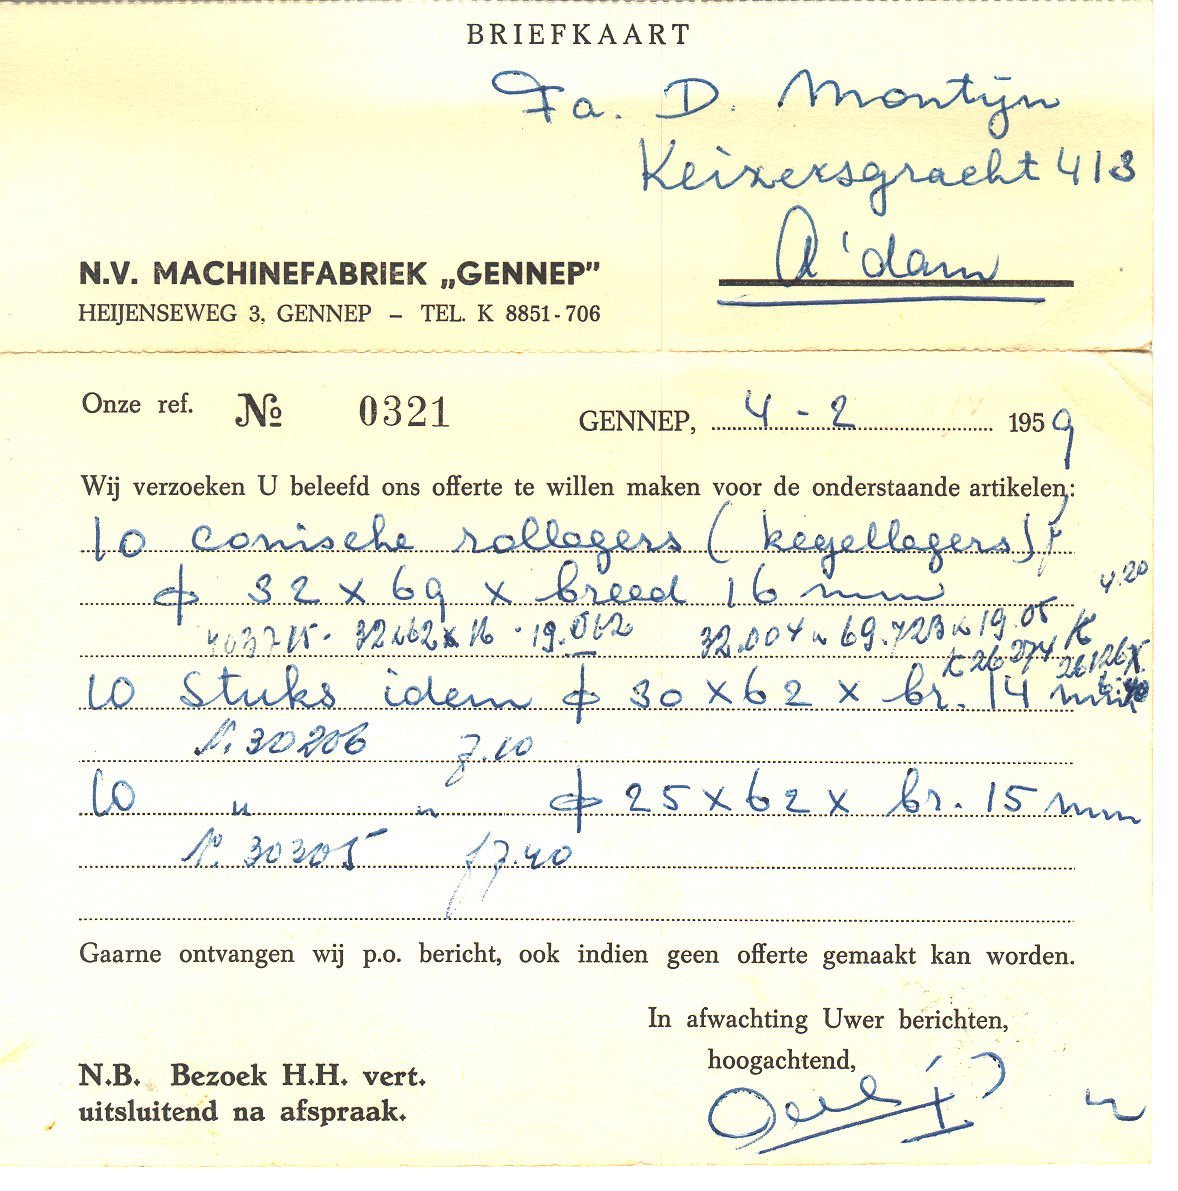 BRIEFKAART
Fa. D. Montijn
Keizersgracht 413
A'dam
N.V. MACHINEFABRIEK „GENNEP”
HEIJENSEWEG 3, GENNEP – TEL. K 8851-706
Onze ref. № 0321
GENNEP, 4-2 1959
Wij verzoeken U beleefd ons offerte te willen maken voor de onderstaande artikelen:
10 conische rollagers (kegellagers)
ф 32 x 69 x breed 16 mm
4.20
32x62x16 - 19.012 32.004 x 69.723 x 19.05
K 26274 K
10 Stuks idem ф 30 x 62 x br. 14 mm
N. 30206 7.10
10 " " ф 25 x 62 x br. 15 mm
N. 30305 f 7.40
Gaarne ontvangen wij p.o. bericht, ook indien geen offerte gemaakt kan worden.
In afwachting Uwer berichten,
hoogachtend,
N.B. Bezoek H.H. vert.
uitsluitend na afspraak.